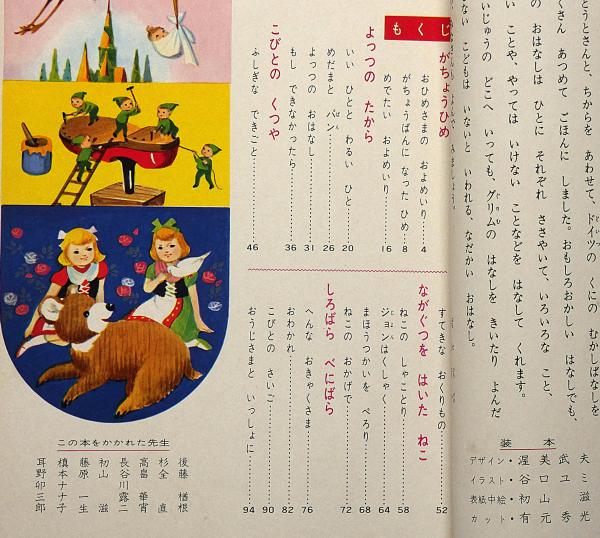 とうとさんと、ちからを あわせて、ドイツの くにの むかしばなしを
くさん あつめて ごほんに しました。おもしろおかしい はなしでも、
の おはなしは ひとに それぞれ ささやいて、いろいろな こと、
い ことや、やっては いけない ことなどを はなして くれます。
いじゅうの どこへ いっても、グリムの はなしを きいたり よんだ
ない こどもは いないと いわれる、なだかい おはなし。
装本
デザイン・渥美武夫
イラスト・谷口ユミ
表紙中絵・初山滋
カット・有元秀光
もくじ
がちょうひめ
おひめさまの およめいり 4
がちょうばんに なった ひめ 8
めでたい およめいり 16
よっつの たから
いい ひとと わるい ひと 20
めだまと パン 26
よっつの おはなし 31
もし できなかったら 36
こびとの くつや
ふしぎな できごと 46
ながぐつを はいた ねこ
すてきな おくりもの 52
ねこの しゃことり 58
ジョンはくしゃく 64
まほうつかいを ぺろり 68
ねこの おかげで 72
しろばら べにばら
へんな おきゃくさま 76
おわかれ 82
こびとの さいご 90
おうじさまと いっしょに 94
この本をかかれた先生
後藤楢根
杉全直
高畠華宵
長谷川露二
初山滋
藤原一生
槙本ナナ子
耳野卯三郎